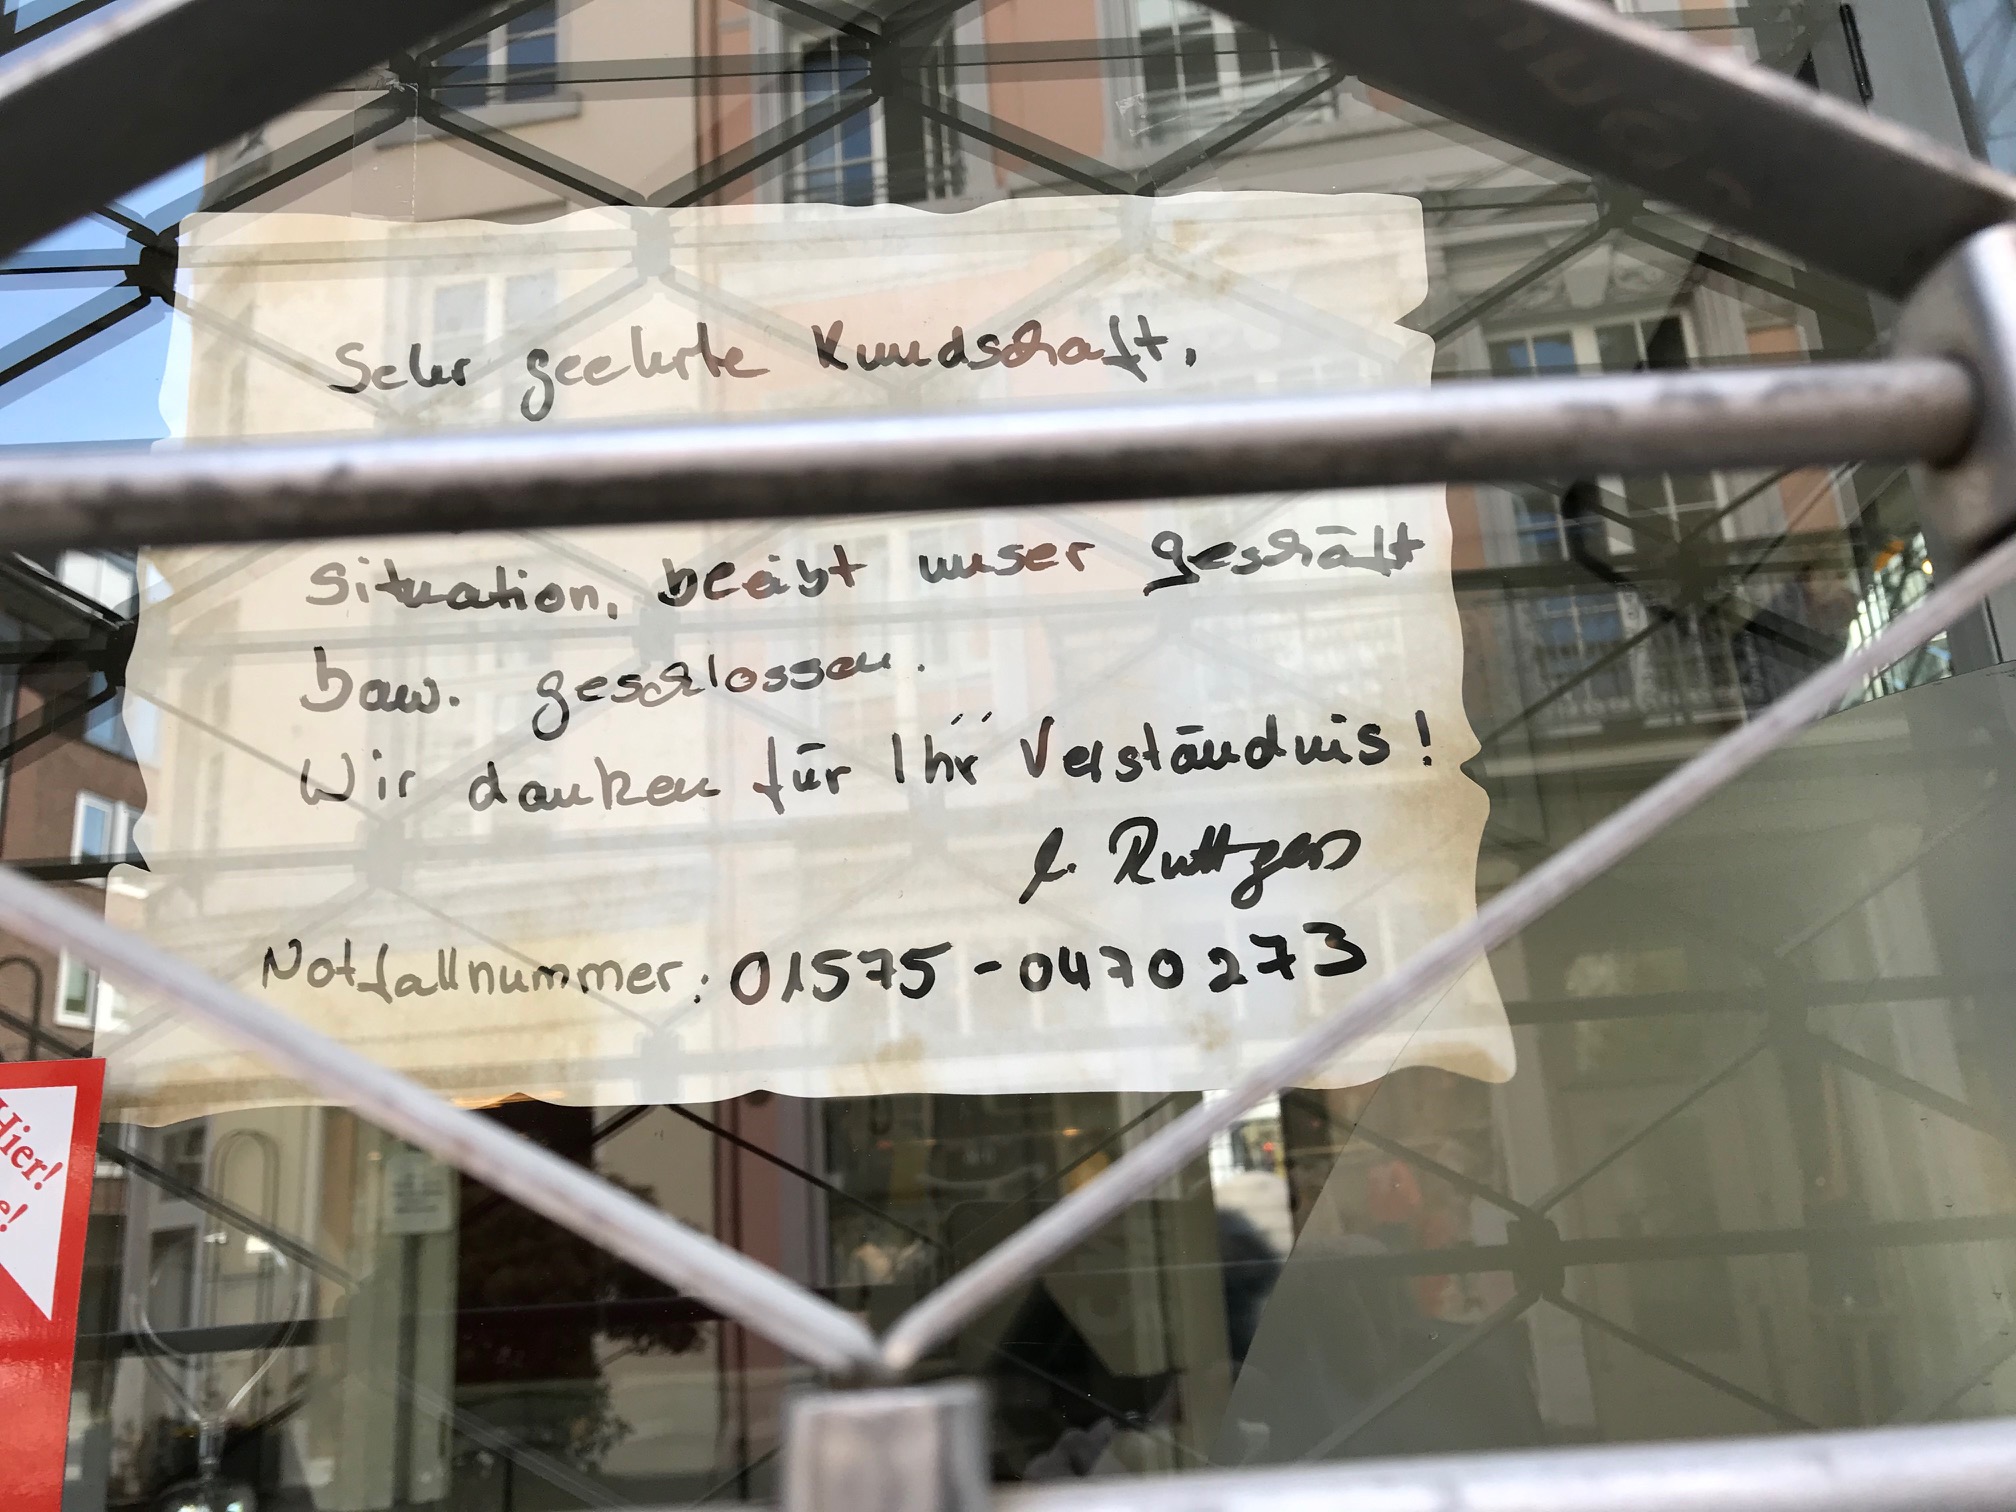 Sehr geehrte Kundschaft,
Situation, bleibt unser geschäft
baw. geschlossen.
Wir danken für Ihr Verständnis!
Ruttgers
Notfallnummer: 01575-0470273
Hier!
e!